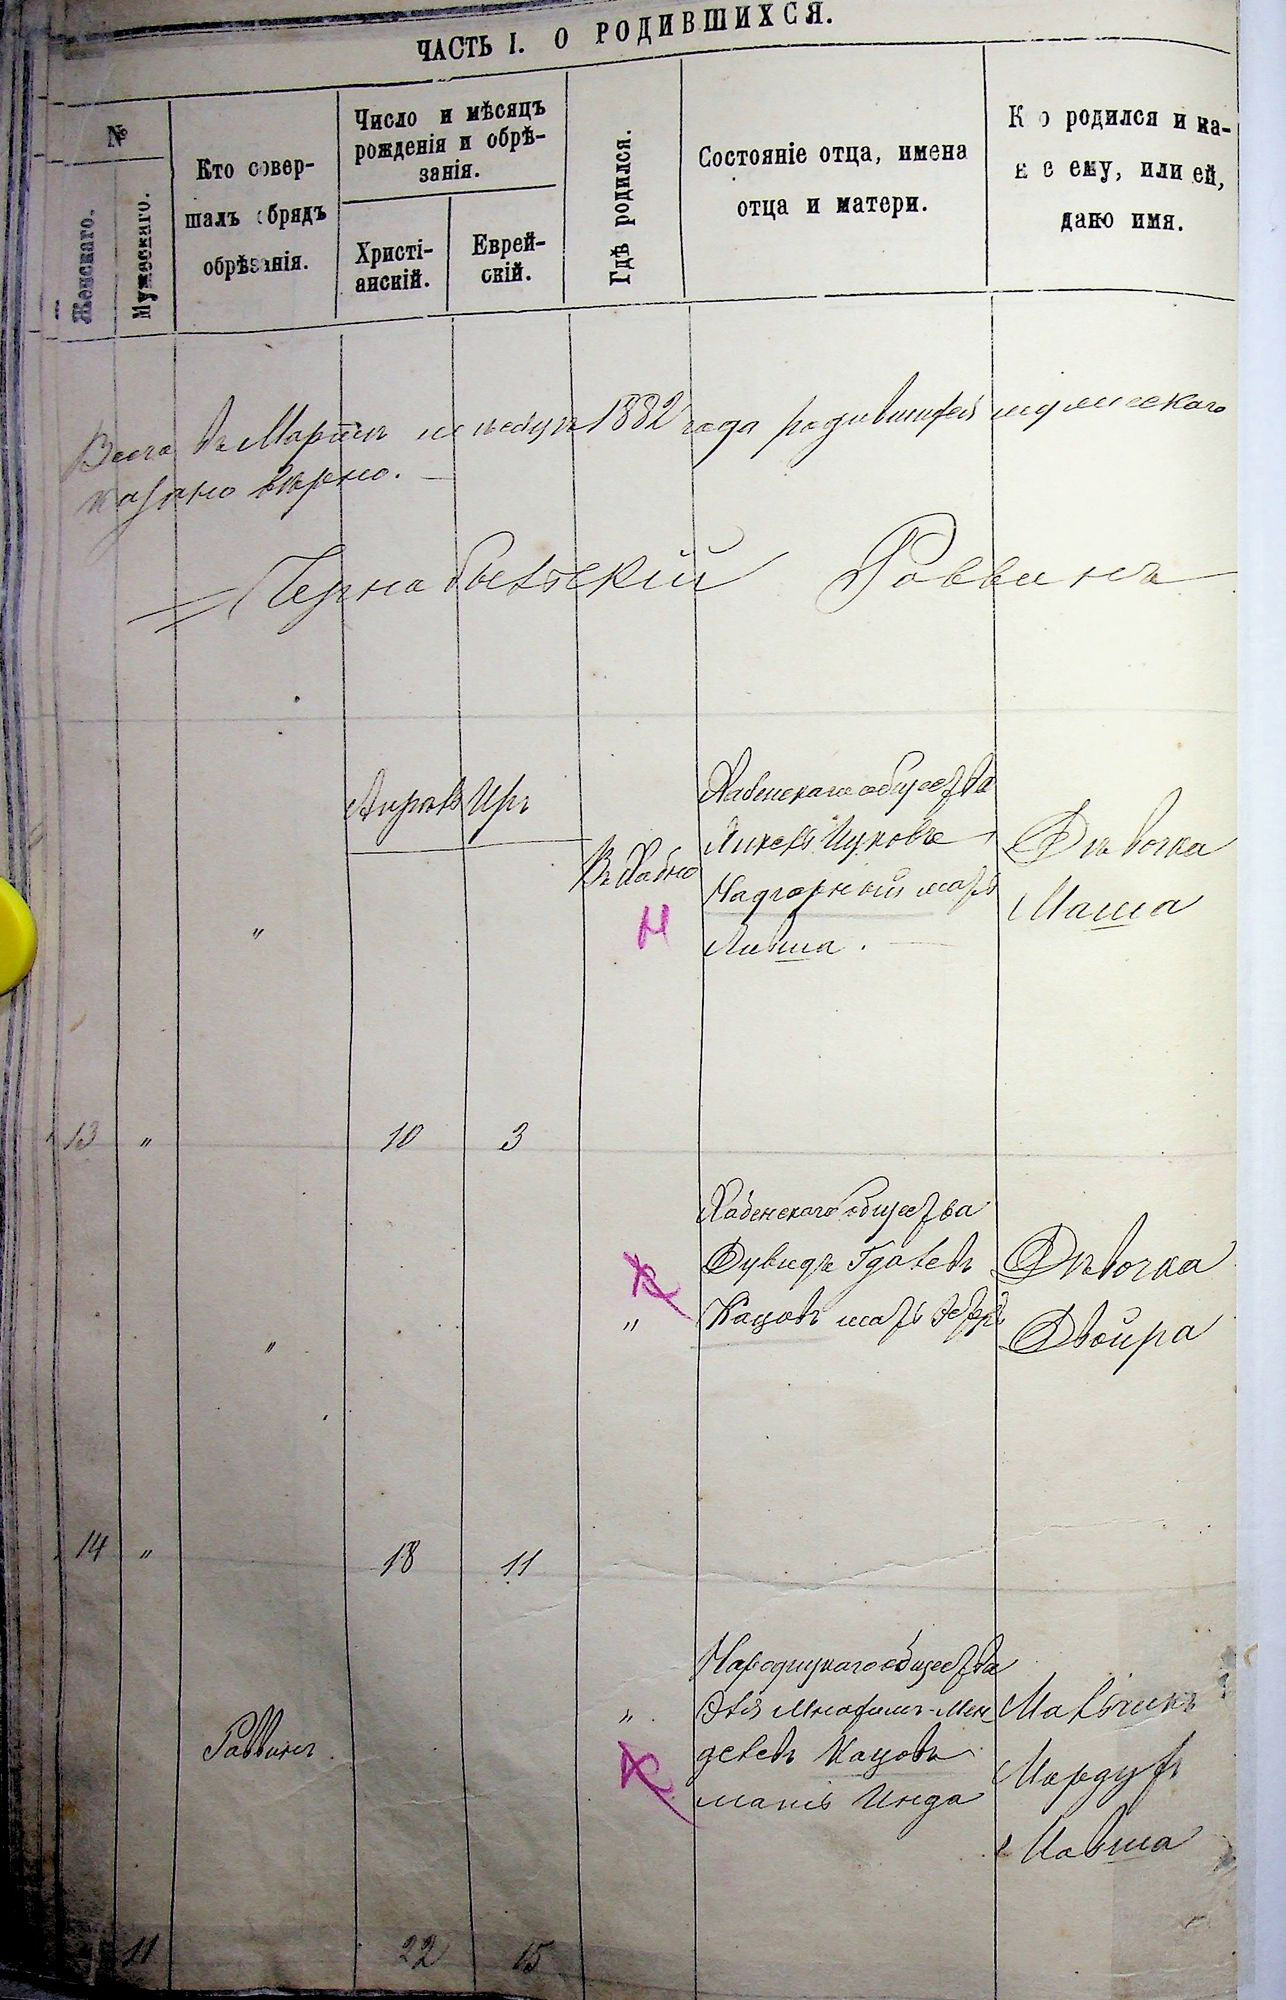 ЧАСТЬ I. О РОДИВШИХСЯ.
№
Женскаго.
Мужескаго.
Кто совер-
шалъ обрядъ
обрѣзанія.
Число и мѣсяцъ
рожденія и обрѣ-
занія.
Христі-
анскій.
Еврей-
скій.
Гдѣ родился.
Состояніе отца, имена
отца и матери.
Кто родился и ка-
кое ему, или ей,
дано имя.
Всего въ Мартѣ мѣсяцѣ 1882 года родившихся мужескаго
казано вѣрно.
Чернобыльскій Раввинъ
Апрѣль Iръ
Хабенскаго общества
Ицковъ
Надгорный мать
Лівша.
Въ Хабно
Н
Дѣвочка
Маша
"
13 " 10 3
Хабенскаго общества
Дувидъ Гдалевъ
Кацовъ мать Эстеръ
Дѣвочка
Двойра
К
"
"
14 " 18 11
Народицкаго общества
Мнафимъ-Мен
делевъ Кацовъ
мать Инда
Мальчикъ
Мардух
Мовша
"
К
Раввинъ
11 22 15